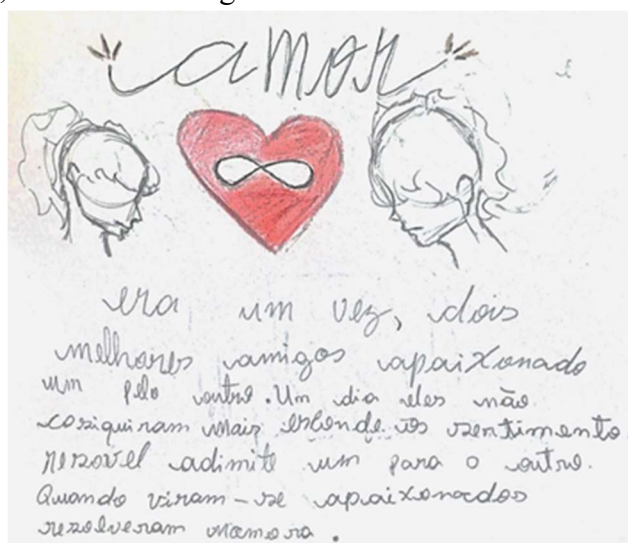 amor
era um vez, dois
melhores amigos apaixonado
um pelo outro. Um dia eles não
cosiquiram mais esconde os sentimento
rezovel adimite um para o outro.
Quando viram-se apaixonados
rezolveram namora.